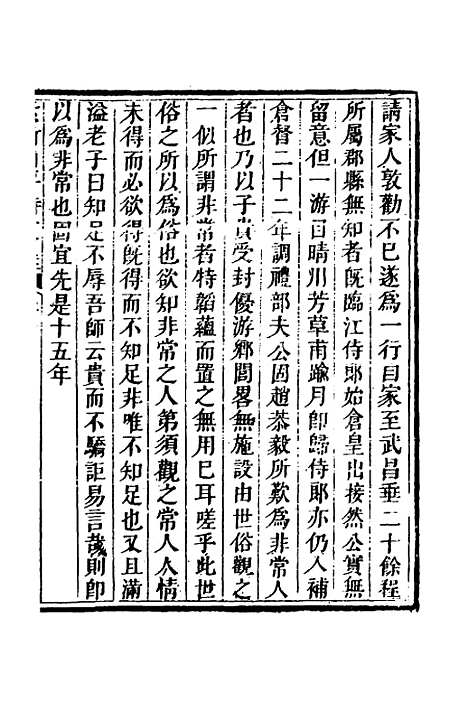 請家人敦勸不已遂爲一行自家至武昌垂二十餘程
所屬郡縣無知者旣臨江侍郎始倉皇出接然公實無
留意但一游日晴川芳草甫踰月卽歸侍郎亦仍入補
倉督二十二年調禮部夫公固趙恭毅所歎爲非常人
者也乃以子貴受封優游鄉閭畧無施設由世俗觀之
一似所謂非常者特韜蘊而置之無用已耳嗟乎此世
俗之所以爲俗也欲知非常之人第須觀之常人人情
未得而必欲得旣得而不知足非唯不知足也又且滿
溢老子曰知足不辱吾師云貴而不驕詎易言哉則卽
以爲非常也固宜先是十五年